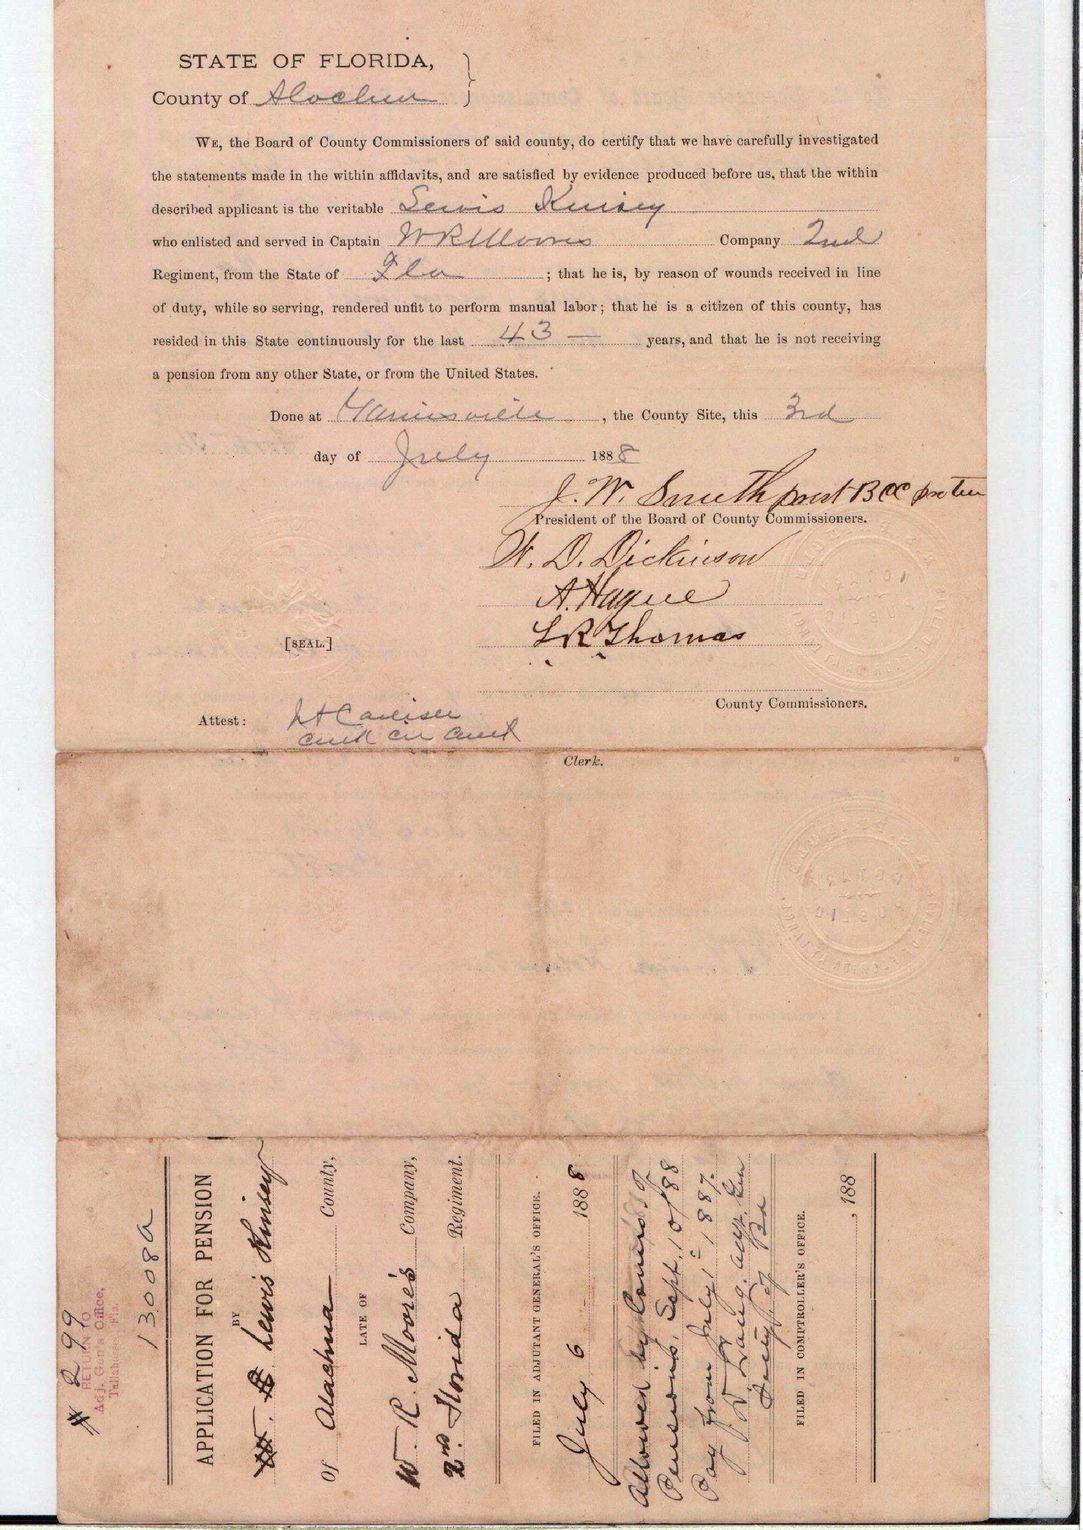 STATE OF FLORIDA,
County of Alachua
WE, the Board of County Commissioners of said county, do certify that we have carefully investigated
the statements made in the within affidavits, and are satisfied by evidence produced before us, that the within
described applicant is the veritable Lewis Kinsey
who enlisted and served in Captain W R Moores Company 2nd
Regiment, from the State of Fla ; that he is, by reason of wounds received in line
of duty, while so serving, rendered unfit to perform manual labor; that he is a citizen of this county, has
resided in this State continuously for the last 43 — years, and that he is not receiving
a pension from any other State, or from the United States.
Done at Gainesville , the County Site, this 3rd
day of July 1888
J. W. Smith prest B C C pro tem
President of the Board of County Commissioners.
W. D. Dickinson
A. Hague
L R Thomas
[SEAL.]
County Commissioners.
Attest: Carlisle
Clerk Cir Court
Clerk.
# 299
RETURN TO
Adj. Gen's Office,
Tallahassee, Fla.
13008a
APPLICATION FOR PENSION
BY
Lewis Kinsey
Of Alachua County,
LATE OF
W. R. Moore's Company,
2nd Florida Regiment.
FILED IN ADJUTANT GENERAL'S OFFICE.
July 6 1888
Allowed by Comrs. of
Pensions, Sept. 10/88
Pay from July 1st 1887.
J D Lang. adjt. Gen
Secty of Bd
FILED IN COMPTROLLER'S OFFICE.
, 188